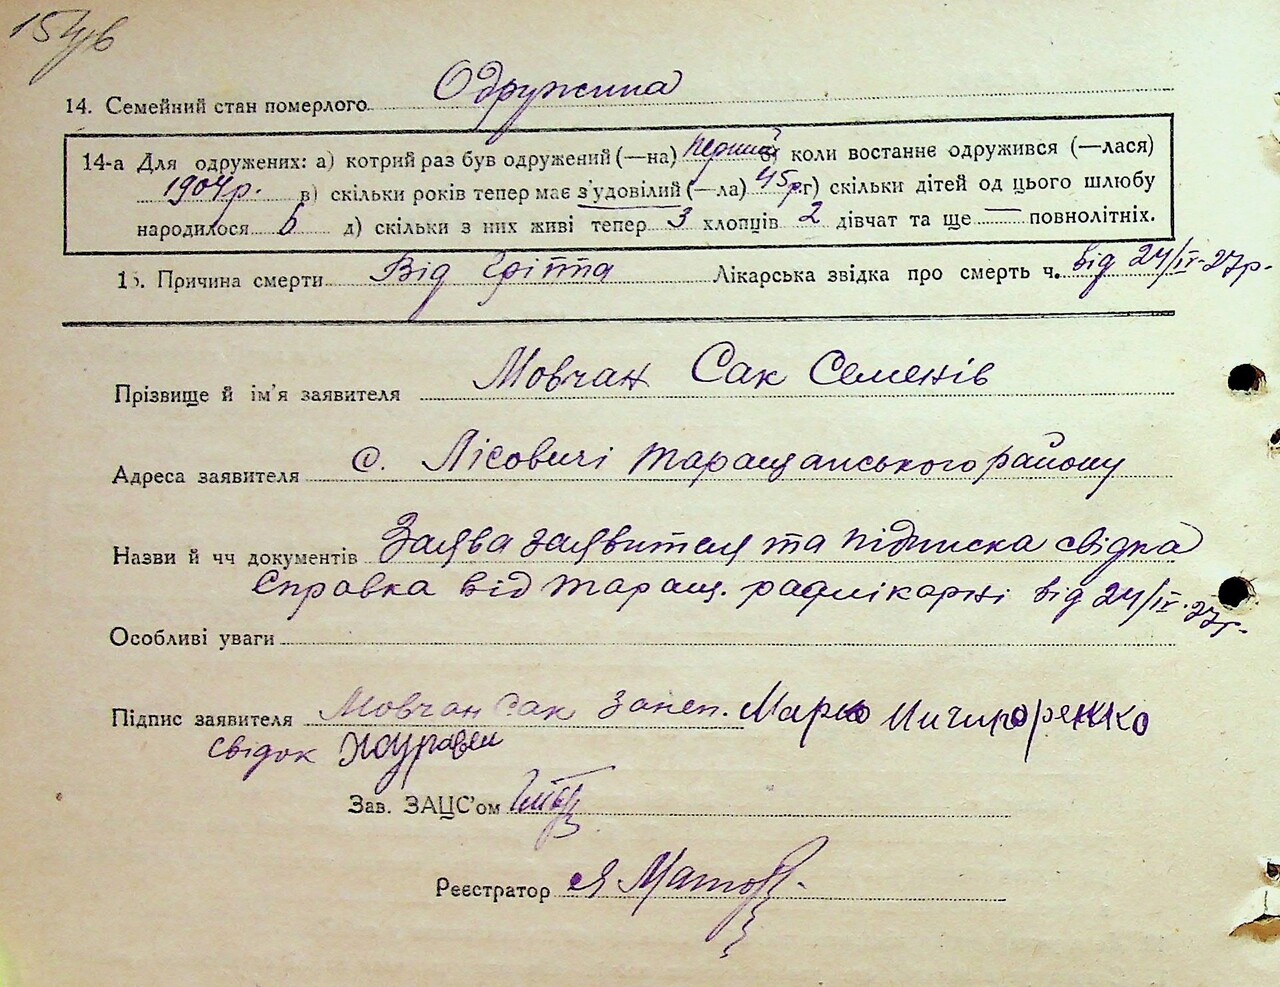 14. Семейний стан померлого Одружина
14-а Для одружених: а) котрий раз був одружений (—на) перший б) коли востанне одружився (—лася)
1904р. в) скільки років тепер має з'удовілий (—ла) 45р. г) скільки дітей од цього шлюбу
народилося 5 д) скільки з них живі тепер 3 хлопців 2 дівчат та ще — повнолітніх.
15. Причина смерти Від гріппа Лікарська звідка про смерть ч. від 24/IV-27р.
Прізвище й ім'я заявителя Мовчан Сак Семенів
Адреса заявителя с. Лісовичі Таращанського району
Назви й чч документів Заява заявителя та підписка свідка
Справка від Таращ. райлікарні від 24/IV-27р.
Особливі уваги
Підпис заявителя Мовчан Сак Марко
Свідок Журавель
Зав. ЗАЦС'ом
Реєстратор